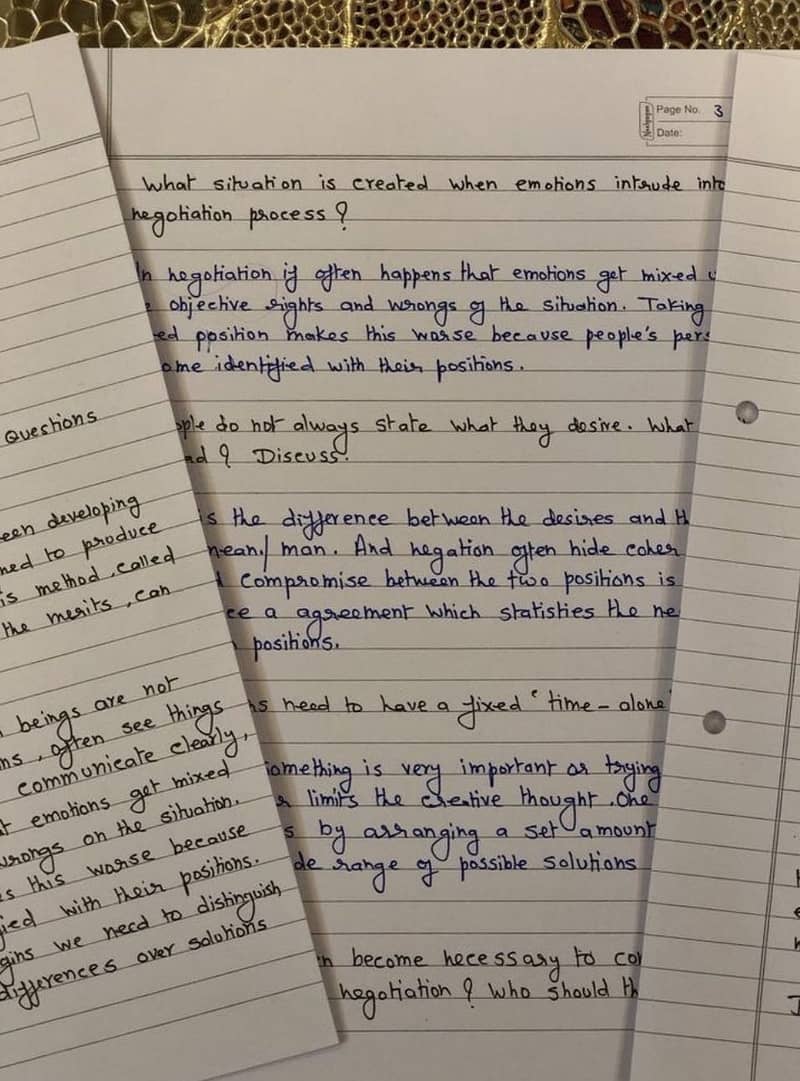 Page No. 3
Date:
What situation is created when emotions intrude into
negotiation process ?
In negotiation if often happens that emotions get mixed
objective rights and wrongs of the situation. Taking
ed pposition makes this worse because people's pers
ome identified with their positions.
ople do not always state what they desire. What
ad ? Discuss.
is the difference between the desires and th
mean/ man. And negation often hide coher
compromise between the two positions is
ce a agreement which statisties the ne
positions.
ns need to have a fixed ' time - alone'
something is very important or trying
limits the creative thought. One
s by arranging a set amount
de range of possible solutions
n become necessary to co
negotiation ? Who should th
Questions
een developing
ned to produce
is method, called
the merits, can
beings are not
ns, often see things
communicate clearly,
t emotions get mixed
wrongs on the situation.
es this warse because
fied with their positions.
gins we need to distinguish
differences over solutions